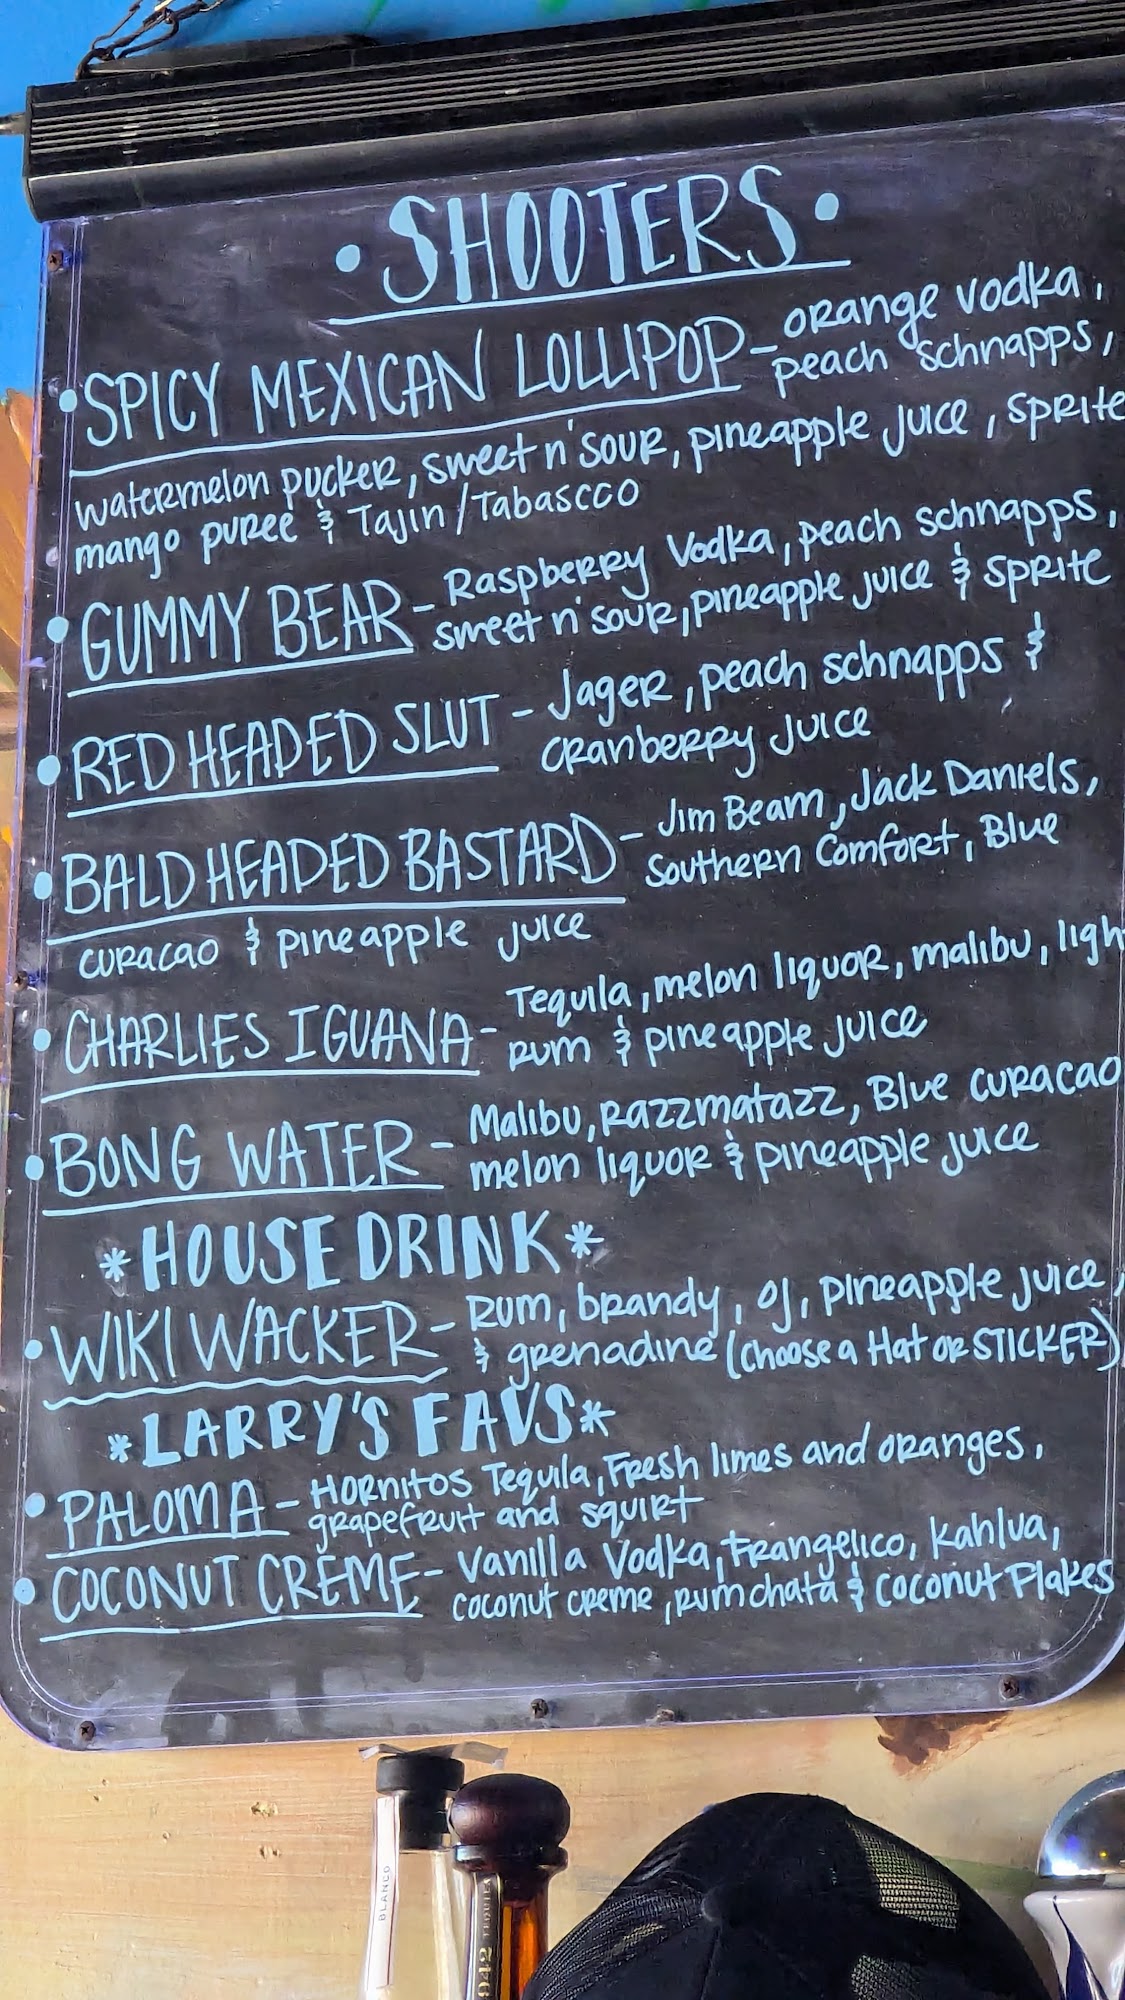 • SHOOTERS •
• SPICY MEXICAN LOLLIPOP - orange vodka,
peach schnapps,
watermelon pucker, sweet n' sour, pineapple juice, sprite
mango puree & Tajin / Tabascco
• GUMMY BEAR - Raspberry Vodka, peach schnapps,
sweet n' sour, pineapple juice & sprite
• RED HEADED SLUT - Jager, peach schnapps &
cranberry juice
• BALD HEADED BASTARD - Jim Beam, Jack Daniels,
Southern Comfort, Blue
curacao & pineapple juice
• CHARLIES IGUANA - Tequila, melon liquor, malibu, ligh
rum & pineapple juice
• BONG WATER - Malibu, razzmatazz, Blue curacao
melon liquor & pineapple juice
*HOUSE DRINK*
• WIKI WACKER - rum, brandy, oj, pineapple juice,
& grenadine (choose a Hat or STICKER)
*LARRY'S FAVS*
• PALOMA - Hornitos Tequila, Fresh limes and oranges,
grapefruit and squirt
• COCONUT CREME - Vanilla Vodka, Frangelico, Kahlua,
coconut creme, rumchata & coconut Flakes
BLANCO
1942 TEQUILA